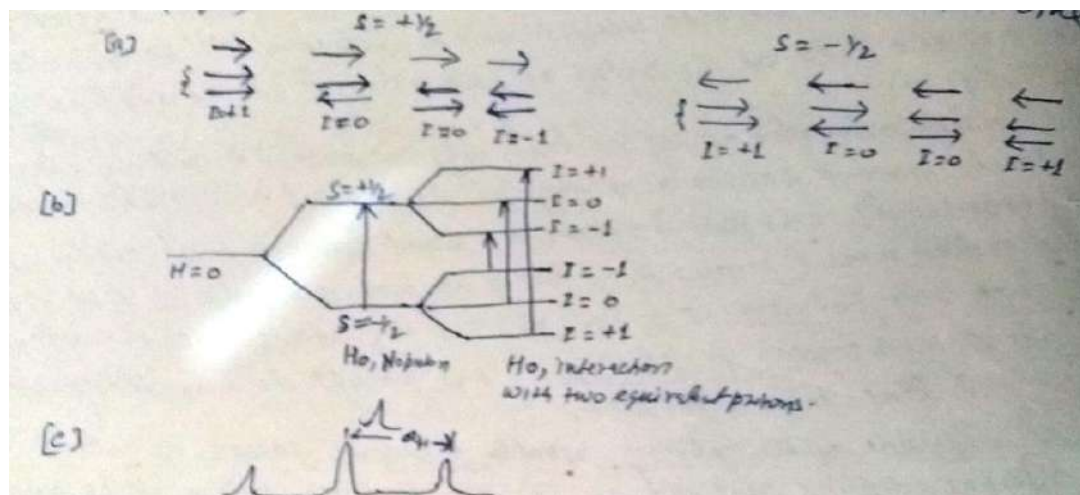 [a]
S = +1/2
S = -1/2
I=+1
I=0
I=0
I=-1
I=+1
I=0
I=0
I=+1
[b]
H=0
S=+1/2
S=-1/2
I=+1
I=0
I=-1
I=-1
I=0
I=+1
Ho, No
Ho, interaction
with two equivalent protons.
[c]
aH